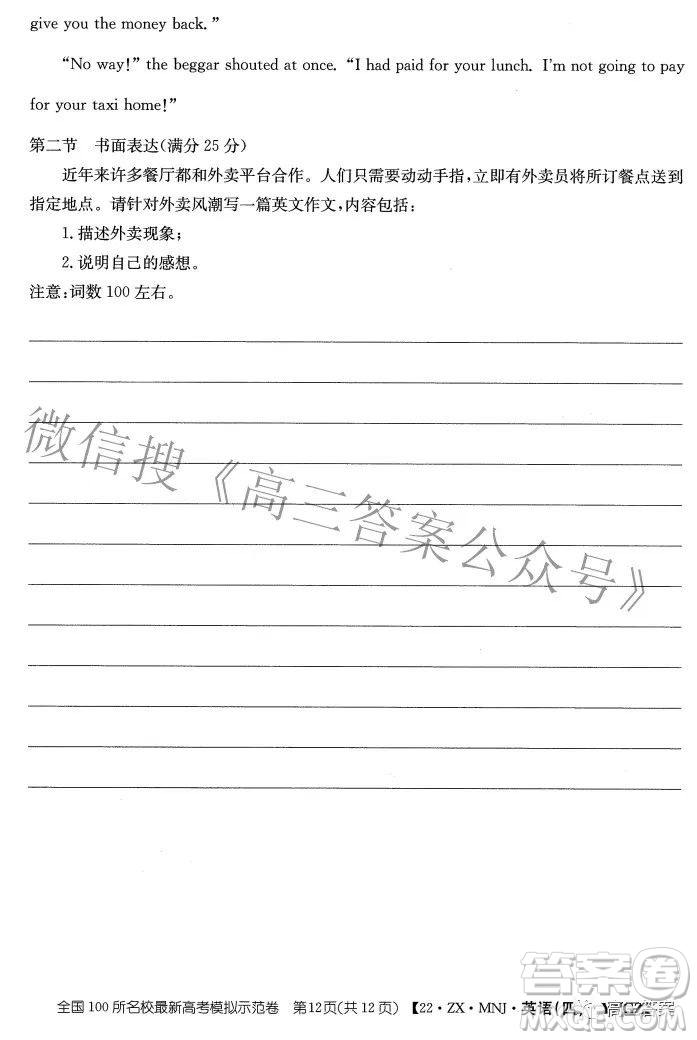 give you the money back.”
“No way!” the beggar shouted at once. “I had paid for your lunch. I’m not going to pay
for your taxi home!”
第二节 书面表达(满分25分)
近年来许多餐厅都和外卖平台合作。人们只需要动动手指,立即有外卖员将所订餐点送到
指定地点。请针对外卖风潮写一篇英文作文,内容包括:
1.描述外卖现象;
2.说明自己的感想。
注意:词数100左右。
微信搜《高三答案公众号》
答案圈
全国100所名校最新高考模拟示范卷 第12页(共12页) 【22·ZX·MNJ·英语(四